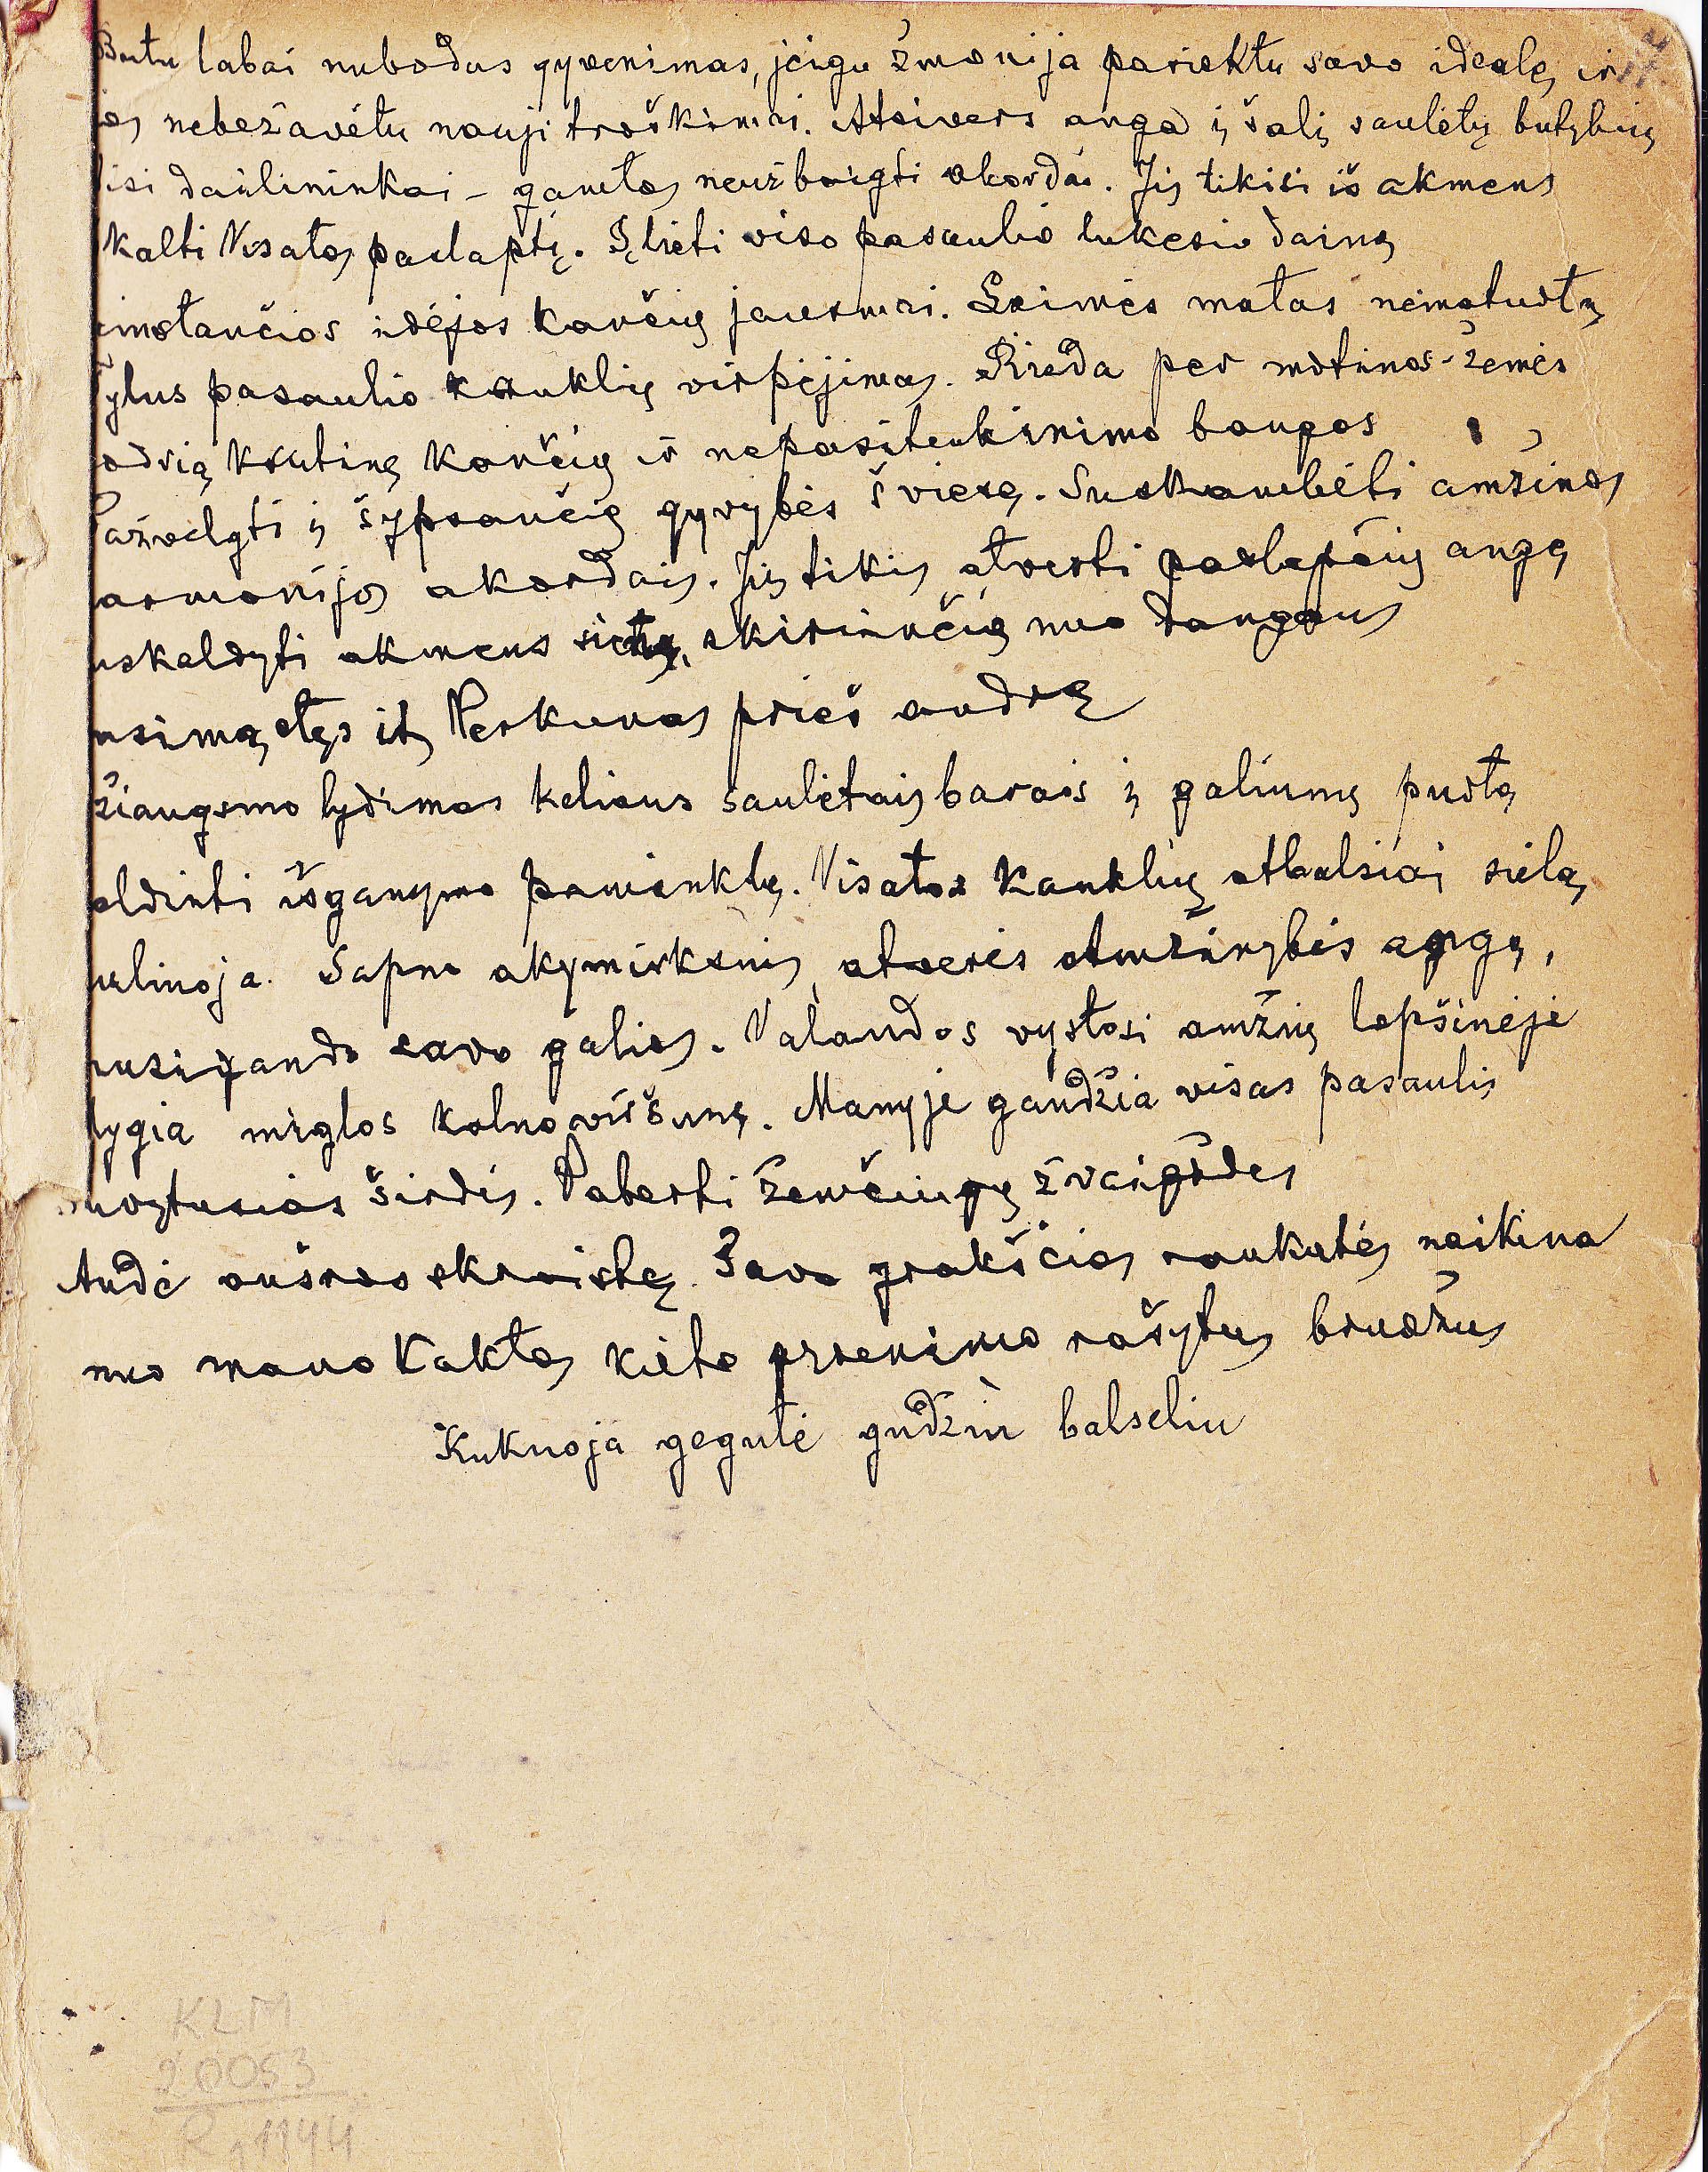 Butu labai nubodus gyvenimas, jeigu žmonija pasiektu savo idealą ir
jos nebežavėtu nauji troškimai. Atsivers anga į šalį saulėtų butybių
Visi dailininkai – gamtos neužbaigti akordai. Jis tikisi iš akmens
kalti Visatos paslaptį. Įlieti viso pasaulio lukesio dainą
idėjos kančių jausmai. Laimės matas neimatuotą
tylus pasaulio kanklių virpėjimas. Rieda per motinos-žemės
krutinę kančių ir nepasitenkinimo bangos
Pažvelgti į šypsančią gyvybės šviesą. Suskambėti amžinos
armonijos akordais. Jis tikis atverti paslapčių angą
uskaldyti akmens sieną, skiriančią nuo dangaus
usimąstęs it Perkunas prieš audrą
žiaugsmo lydimas keliaus saulėtais barais į galiunų puotą
aldinti išganymo paminklą. Visatos kanklių atbalsiai sielą
ulinoja. Sapno akymirksnis atvėrės Amžinybės angą,
nusigando savo galios. Valandos vystosi amžių lopšinėje
lygia miglos kalno viršunę. Manyje gaudžia visas pasaulis
širdis. Paberti žemčiugų žvaigždes
Audė aušros skraistę. Savo grakščios rankutės naikina
nuo mano kaktos kieto gyvenimo rašytus bruožus
Kukuoja gegutė gudžiu balseliu
KLM
20053
R 1944